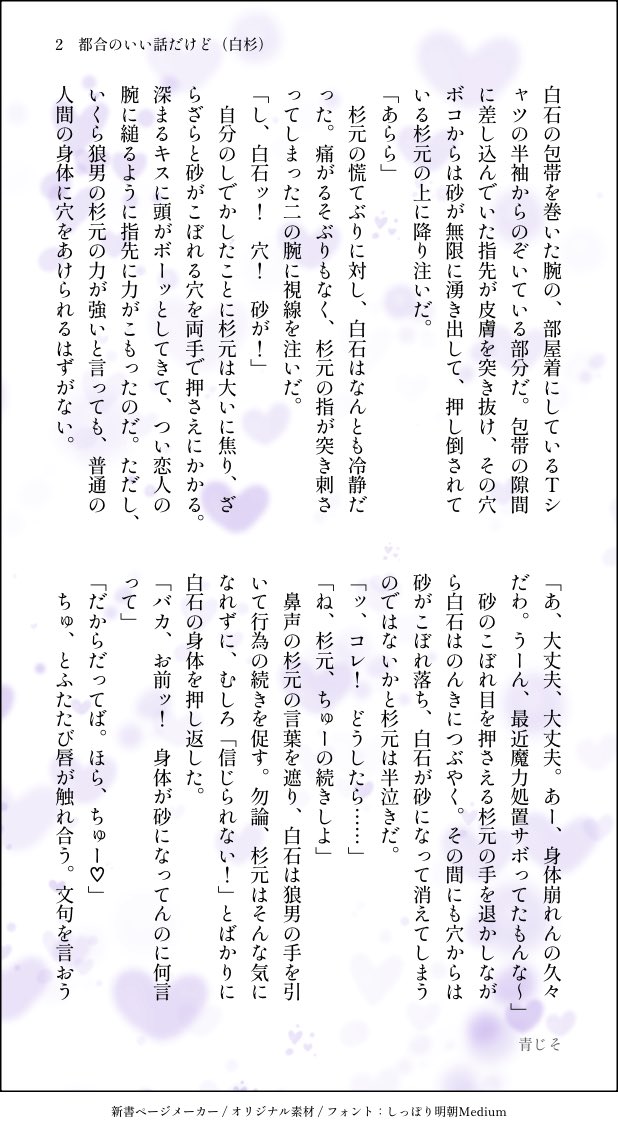 2　都合のいい話だけど（白杉）
白石の包帯を巻いた腕の、部屋着にしているＴシ
ャツの半袖からのぞいている部分だ。包帯の隙間
に差し込んでいた指先が皮膚を突き抜け、その穴
ボコからは砂が無限に湧き出して、押し倒されて
いる杉元の上に降り注いだ。
「あらら」
　杉元の慌てぶりに対し、白石はなんとも冷静だ
った。痛がるそぶりもなく、杉元の指が突き刺さ
ってしまった二の腕に視線を注いだ。
「し、白石ッ！　穴！　砂が！」
　自分のしでかしたことに杉元は大いに焦り、ざ
らざらと砂がこぼれる穴を両手で押さえにかかる。
深まるキスに頭がボーッとしてきて、つい恋人の
腕に縋るように指先に力がこもったのだ。ただし、
いくら狼男の杉元の力が強いと言っても、普通の
人間の身体に穴をあけられるはずがない。
「あ、大丈夫、大丈夫。あー、身体崩れんの久々
だわ。うーん、最近魔力処置サボってたもんな〜」
　砂のこぼれ目を押さえる杉元の手を退かしなが
ら白石はのんきにつぶやく。その間にも穴からは
砂がこぼれ落ち、白石が砂になって消えてしまう
のではないかと杉元は半泣きだ。
「ッ、コレ！　どうしたら……」
「ね、杉元、ちゅーの続きしよ」
　鼻声の杉元の言葉を遮り、白石は狼男の手を引
いて行為の続きを促す。勿論、杉元はそんな気に
なれずに、むしろ「信じられない！」とばかりに
白石の身体を押し返した。
「バカ、お前ッ！　身体が砂になってんのに何言
って」
「だからだってば。ほら、ちゅー♡」
　ちゅ、とふたたび唇が触れ合う。文句を言おう
青じそ
新書ページメーカー / オリジナル素材 / フォント：しっぽり明朝Medium